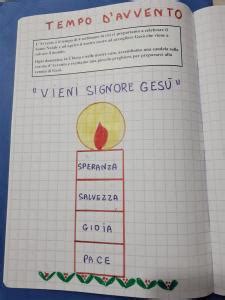 TEMPO D'AVVENTO
L'Avvento è il tempo di 4 settimane in cui ci prepariamo a celebrare il
Santo Natale e ad aprire il nostro cuore ad accogliere Gesù che viene a
salvare il mondo.
Ogni domenica, in Chiesa e nelle nostre case, accendiamo una candela sulla
corona d'Avvento e recitiamo una piccola preghiera per prepararci alla
venuta di Gesù.
"VIENI SIGNORE GESÙ"
SPERANZA
SALVEZZA
GIOIA
PACE